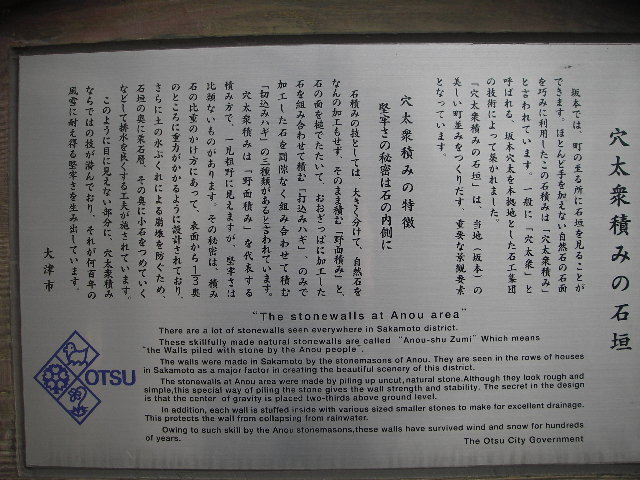 穴太衆積みの石垣
坂本では、町の至る所に石垣を見ることが
できます。ほとんど手を加えない自然石の石面
を巧みに利用したこの石積みは「穴太衆積み」
と言われています。一般に「穴太衆」と
呼ばれる、坂本穴太を本拠地とした石工集団
の技術によって築かれました。
「穴太衆積みの石垣」は、当地(坂本)の
美しい町並みをつくりだす、重要な景観要素
となっています。
穴太衆積みの特徴
堅牢さの秘密は石の内側に
石積みの技としては、大きく分けて、自然石を
なんの加工もせず、そのまま積む「野面積み」と、
石の面を槌でたたいて、おおざっぱに加工した
石を組み合わせて積む「打込みハギ」、のみで
加工した石を間隙なく組み合わせて積む
「切込みハギ」の三種類があると言われています。
穴太衆積みは「野面積み」を代表する
積み方で、一見粗野に見えますが、堅牢さは
比類ないものがあります。その秘密は、積み
石の比重のかけ方にあって、表面から1/3奥
のところに重力がかかるように設計されており、
さらに土の水ぶくれによる崩壊を防ぐため、
石垣の奥に栗石層、その奥に小石をつめていく
などして排水を良くする工夫が施されています。
このように目に見えない部分に、穴太衆積み
ならではの技が潜んでおり、それが何百年の
風雪に耐え得る堅牢さを生み出しています。
大津市
"The stonewalls at Anou area"
There are a lot of stonewalls seen everywhere in Sakamoto district.
These skillfully made natural stonewalls are called "Anou-shu Zumi" Which means
"the Walls piled with stone by the Anou people".
The walls were made in Sakamoto by the stonemasons of Anou. They are seen in the rows of houses
in Sakamoto as a major factor in creating the beautiful scenery of this district.
The stonewalls at Anou area were made by piling up uncut,natural stone.Although they look rough and
simple,this special way of piling the stone gives the wall strength and stability. The secret in the design
is that the center of gravity is placed two-thirds above ground level.
In addition, each wall is stuffed inside with various sized smaller stones to make for excellent drainage.
This protects the wall from collapsing from rainwater.
Owing to such skill by the Anou stonemasons,these walls have survived wind and snow for hundreds
of years.
The Otsu City Government
OTSU